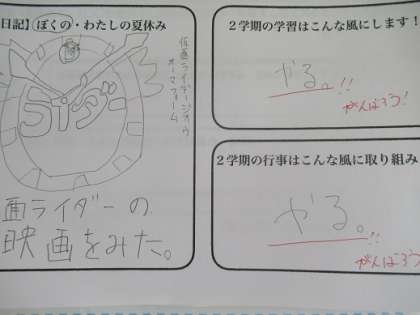 日記】ぼくの・わたしの夏休み
仮面ライダージオウ
オーマフォーム
ライダー
面ライダーの
映画をみた。
２学期の学習はこんな風にします！
やる。!!
がんばろう！
２学期の行事はこんな風に取り組み
やる。!!
がんばろう